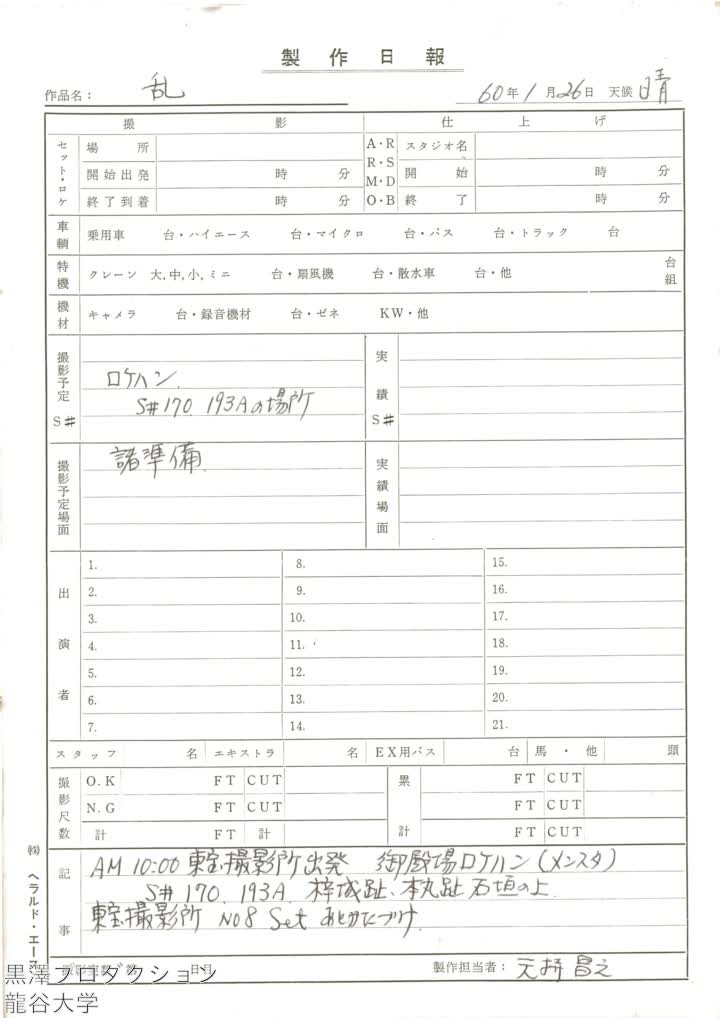 製作日報
作品名： 乱
60年1月26日 天候 晴
撮影 仕上げ
セット・ロケ
場所
開始出発 時 分
終了到着 時 分
A・R
R・S
M・D
O・B
スタジオ名
開始 時 分
終了 時 分
車輌 乗用車 台・ハイエース 台・マイクロ 台・バス 台・トラック 台
特機 クレーン 大,中,小,ミニ 台・扇風機 台・散水車 台・他 台組
機材 キャメラ 台・録音機材 台・ゼネ KW・他
撮影予定 S#
ロケハン
S#170 193Aの場所
実績 S#
撮影予定場面
諸準備
実績場面
出演者
1. 8. 15.
2. 9. 16.
3. 10. 17.
4. 11. 18.
5. 12. 19.
6. 13. 20.
7. 14. 21.
スタッフ 名 エキストラ 名 EX用バス 台 馬・他 頭
撮影尺数
O.K FT CUT 累 FT CUT
N.G FT CUT FT CUT
計 FT 計 計 FT CUT
記事
AM 10:00 東宝撮影所出発 御殿場ロケハン(メンスタ)
S#170. 193A. 梓城趾、本丸趾 石垣の上
東宝撮影所 No8 Set あとかたづけ
㈱ ヘラルド・エース
日目
製作担当者：
黒澤プロダクション
龍谷大学